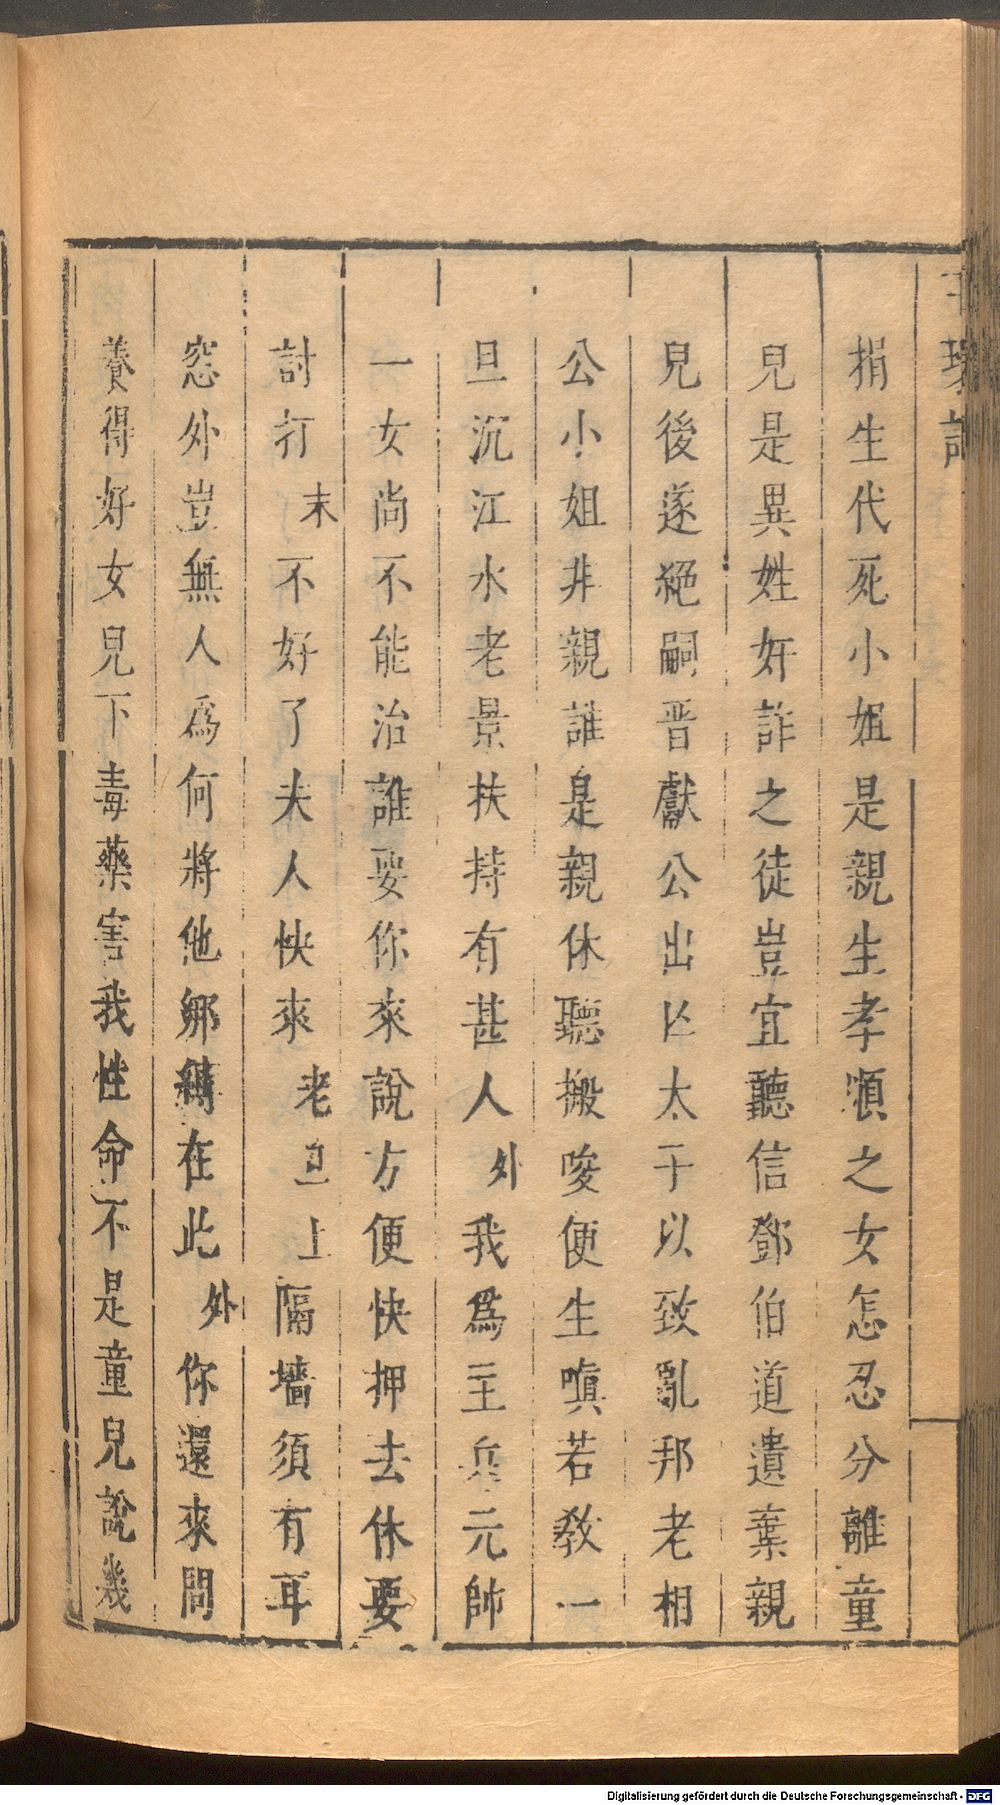 捐生代死小姐是親生孝順之女怎忍分離童
兒是異姓奸詐之徒豈宜聽信鄧伯道遺棄親
兒後遂絕嗣晋獻公出亡太子以致亂邦老相
公小姐非親誰是親休聽搬唆便生嗔若教一
旦沉江水老景扶持有甚人外我爲主兵元帥
一女尚不能治誰要你來說方便快押去休要
討打末不好了夫人快來老旦上隔墻須有耳
窓外豈無人爲何將他綁縛在此外你還來問
養得好女兒下毒藥害我性命不是童兒說幾
Digitalisierung gefördert durch die Deutsche Forschungsgemeinschaft - DFG